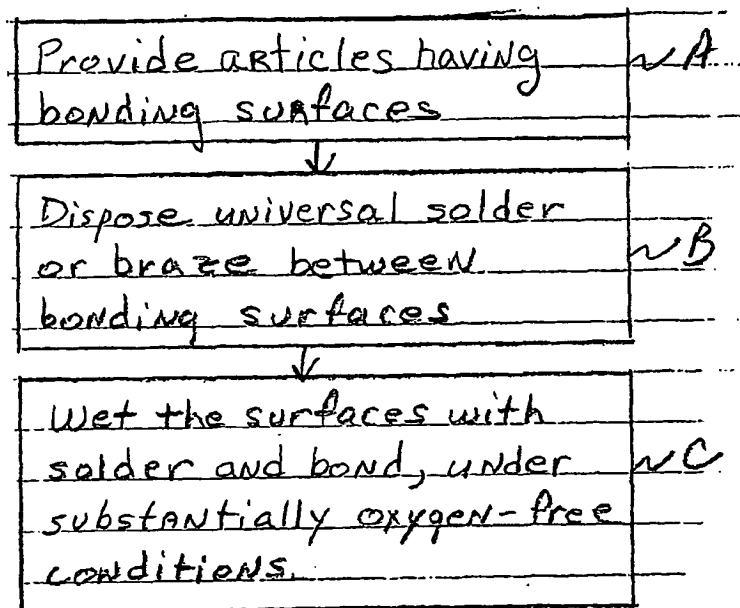 Provide articles having
bonding surfaces
~A
Dispose universal solder
or braze between
bonding surfaces
~B
Wet the surfaces with
solder and bond, under
substantially oxygen-free
conditions.
~C